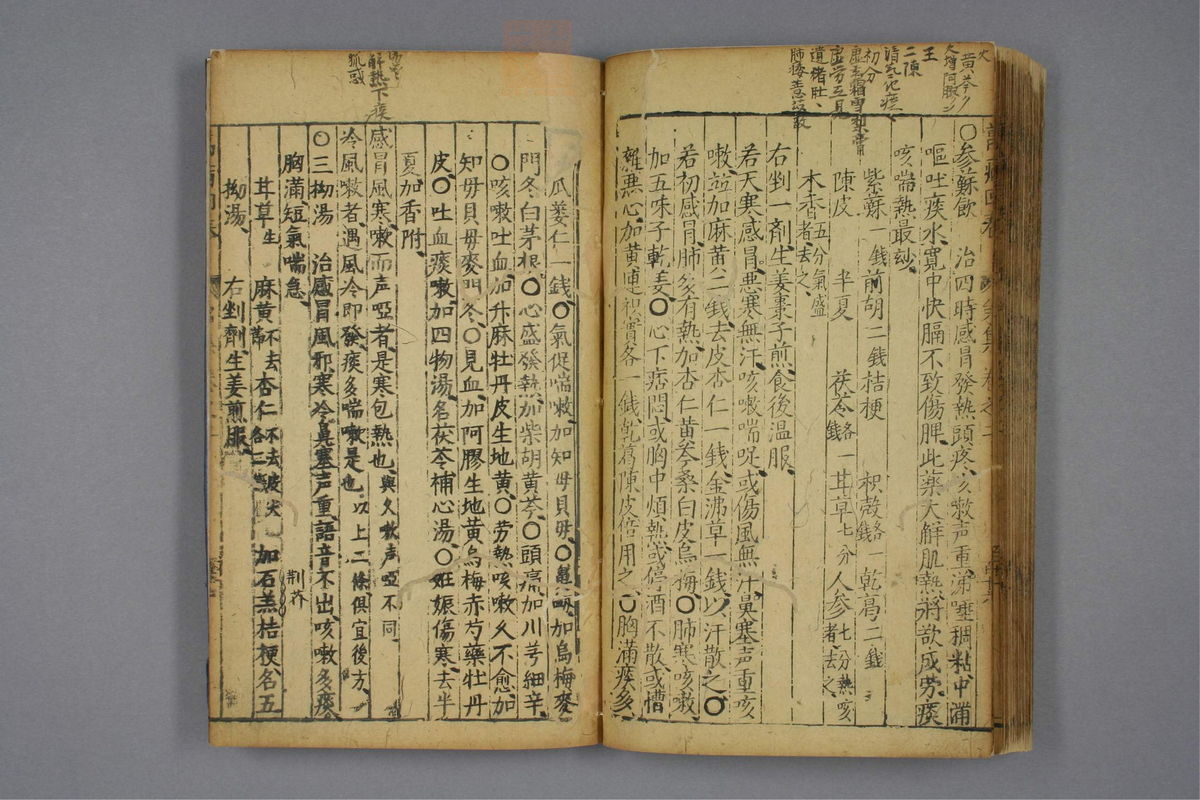 黄芩
王
二陳
清氣化痰
初分
遺精
○参蘇飲　治四時感冒發熱頭疼咳嗽声重涕唾稠粘中滿
嘔吐痰水寛中快膈不致傷脾此藥大解肌熱將欲成劳痰
咳喘熱最妙
紫蘇一錢　前胡二錢　桔梗　枳殼各一錢　乾葛二錢
陳皮　半夏　茯苓各一錢　甘草七分　人参七分熱咳者去之
木香五分氣盛者去之
右剉一剤生姜棗子煎食後温服
若天寒感冒悪寒無汗咳嗽喘促或傷風無汗鼻塞声重咳
嗽並加麻黄二錢去皮杏仁一錢金沸草一錢以汗散之○
若初感冒肺多有熱加杏仁黄芩桑白皮烏梅○肺寒咳嗽
加五味子乾姜○心下痞悶或胸中煩熱或停酒不散或糟
雜悪心加黄連枳實各一錢乾葛陳皮倍用之○胸滿痰多
加瓜蔞仁一錢○氣促喘嗽加知母貝母○鼻衂加烏梅麥
門冬白茅根○心盛發熱加柴胡黄芩○頭疼加川芎細辛
○咳嗽吐血加升麻牡丹皮生地黄○劳熱咳嗽久不愈加
知母貝母麥門冬○見血加阿膠生地黄烏梅赤芍藥牡丹
皮○吐血痰嗽加四物湯名茯苓補心湯○妊娠傷寒去半
夏加香附
感冒風寒嗽而声啞者是寒包熱也與久嗽声啞不同
冷風嗽者遇風冷即發痰多喘嗽是也以上二條俱宜後方
○三拗湯　治感冒風邪寒冷鼻塞声重語音不出咳嗽多痰
胸滿短氣喘急
甘草生　麻黄不去節　杏仁不去皮尖各二錢　加石羔桔梗名五
荆芥
拗湯　右剉劑生姜煎服
解熱下痰